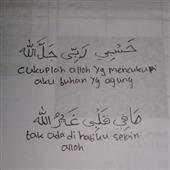 حَسْبِي رَبِّي جَلَّ اللّٰه
cukuplah alloh yg mencukupi
aku tuhan yg agung
مَا فِي قَلْبِي غَيْرُ اللّٰه
tak ada di hatiku selain
alloh